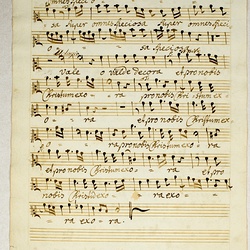 sa Super omnes speciosa Super omnes speci
o sa speciosa
Vale Valde decora et pro nobis
Christum exo ra pro nobis Christum ex
o ra et pro nobis Christum ex
o ra pro nobis Christum exo
ra et
et pro nobis Christum exo ra
nobis Christum exo ra exo
ra exora.